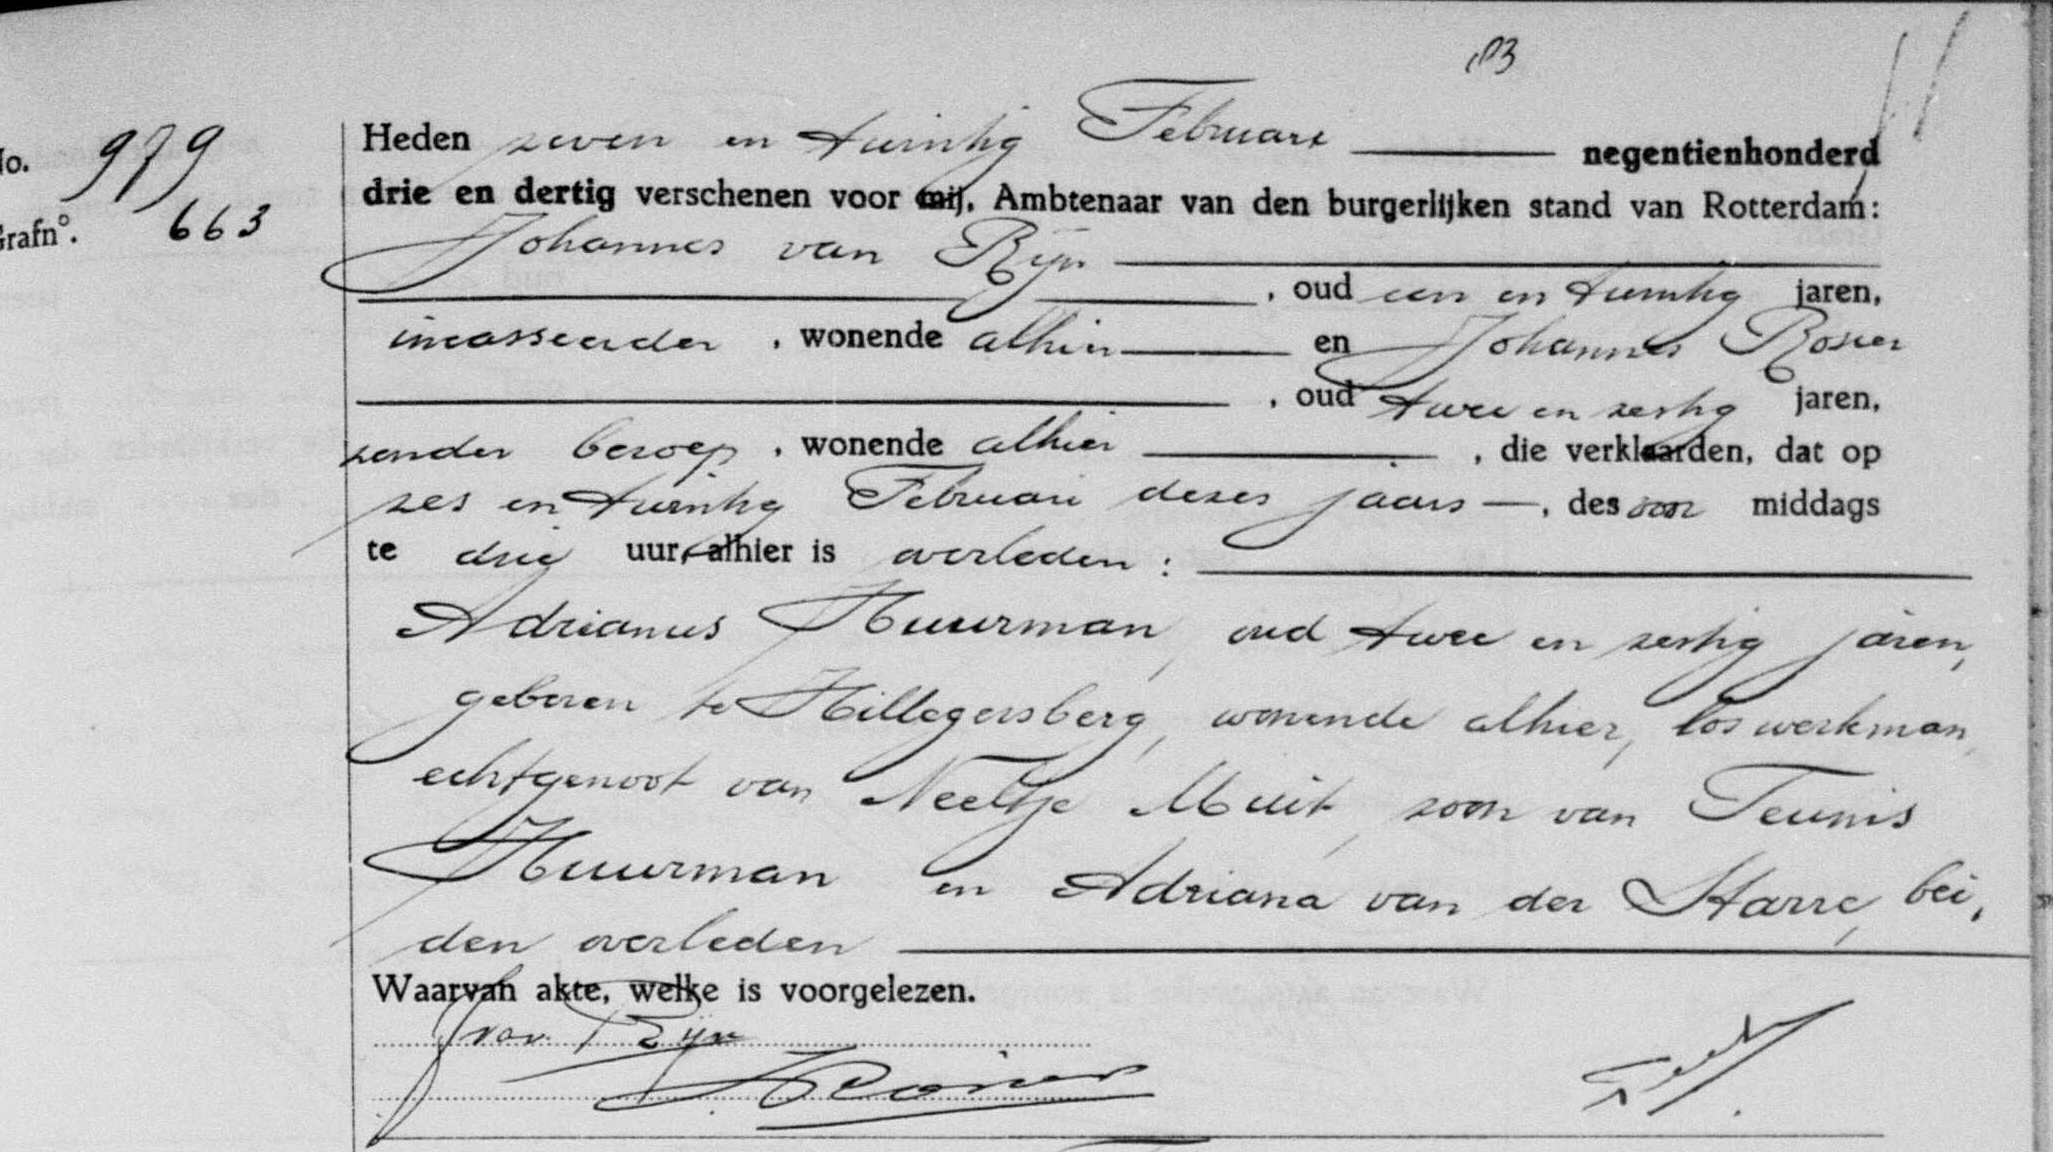 No. 979
Grafn°. 663
Heden zeven en twintig Februari negentienhonderd
drie en dertig verschenen voor mij, Ambtenaar van den burgerlijken stand van Rotterdam:
Johannes van Rijn
, oud een en twintig jaren,
incasseerder , wonende alhier en Johannes Rosier
, oud twee en zestig jaren,
zonder beroep , wonende alhier , die verklaarden, dat op
zes en twintig Februari dezes jaars , des voor middags
te drie uur, alhier is overleden :
Adrianus Huurman, oud twee en zestig jaren,
geboren te Hillegersberg, wonende alhier, los werkman,
echtgenoot van Neeltje Muit, zoon van Teunis
Huurman en Adriana van der Starre, bei,
den overleden
Waarvan akte, welke is voorgelezen.
J van Rijn
J. Rosier